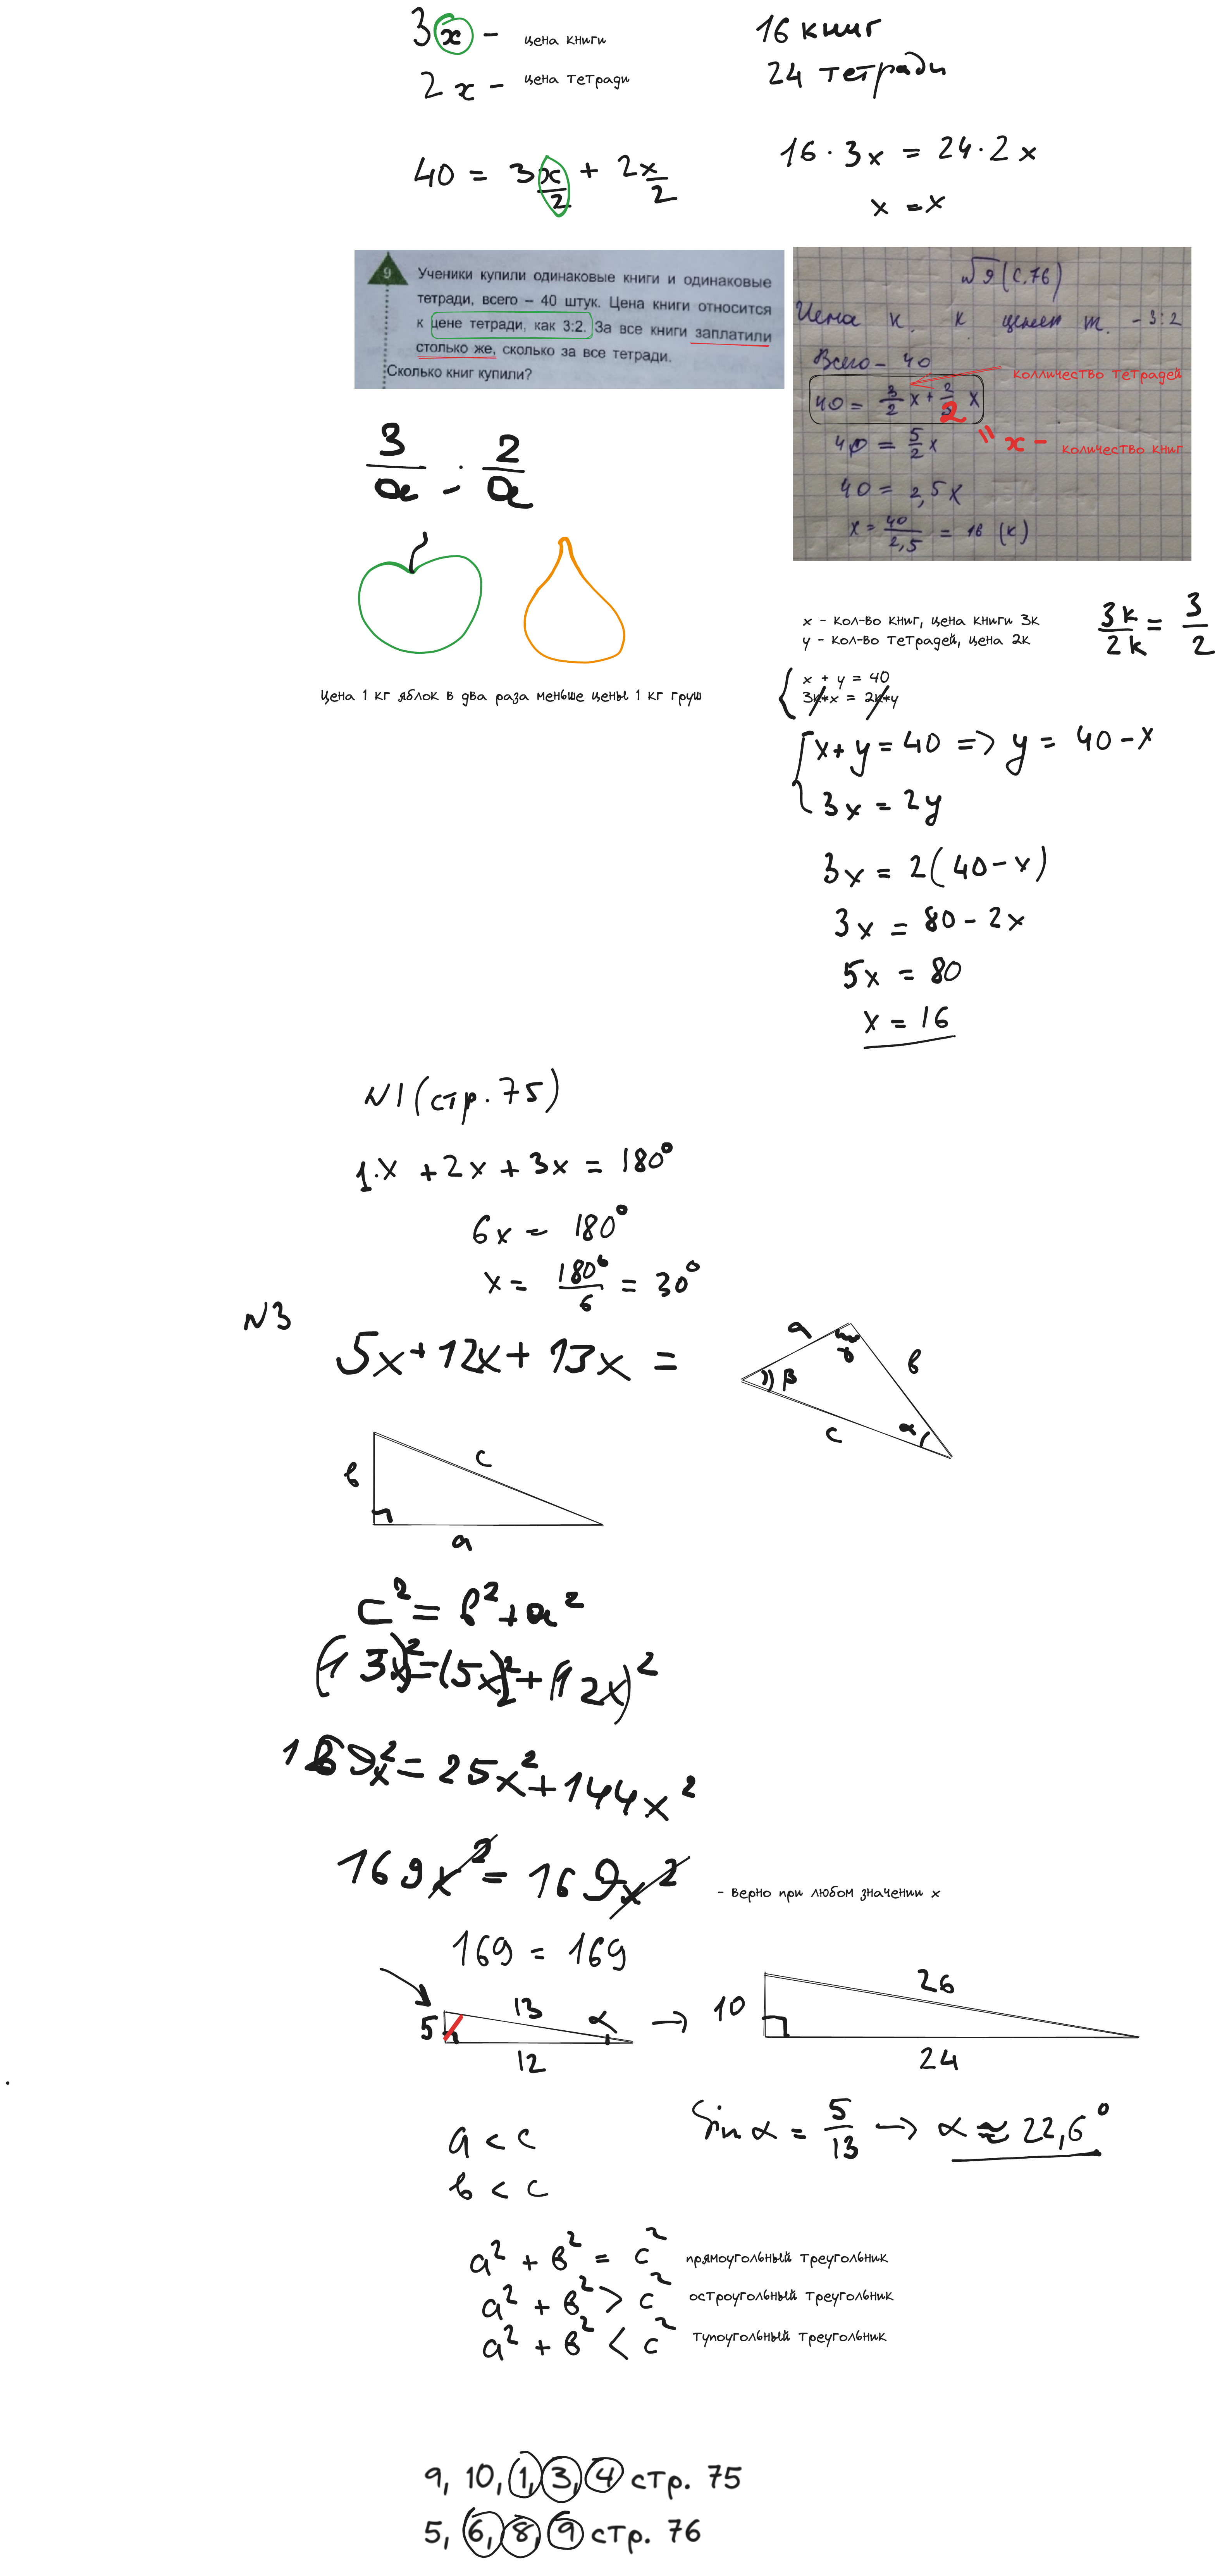 3x - цена книги
2x - цена тетради
16 книг
24 тетради
40 = 3x/2 + 2x/2
16 · 3x = 24 · 2x
x = x
9
Ученики купили одинаковые книги и одинаковые
тетради, всего – 40 штук. Цена книги относится
к цене тетради, как 3:2. За все книги заплатили
столько же, сколько за все тетради.
Сколько книг купили?
√9 (с. 76)
Цена к. к ценет т. - 3:2
Всего - 40
колличество тетрадей
40 = 3/2 x + 2/2 x
40 = 5/2 x
" x - количество книг
40 = 2,5x
x = 40/2,5 = 16 (к)
3/a : 2/a
Цена 1 кг яблок в два раза меньше цены 1 кг груш
x - кол-во книг, цена книги 3к
y - кол-во тетрадей, цена 2к
3k/2k = 3/2
x + y = 40
3к*x = 2к*y
x + y = 40 => y = 40 - x
3x = 2y
3x = 2(40 - x)
3x = 80 - 2x
5x = 80
x = 16
N1 (стр. 75)
1·x + 2x + 3x = 180°
6x = 180°
x = 180°/6 = 30°
N3
5x + 12x + 13x =
a
γ
β
в
c
α
в
c
a
c² = в² + a²
(13x)² = (5x)² + (12x)²
169x² = 25x² + 144x²
169x² = 169x² - верно при любом значении x
169 = 169
5
13
α
12
→
10
26
24
Sin α = 5/13 → α ≈ 22,6°
a < c
в < c
a² + в² = c² прямоугольный треугольник
a² + в² > c² остроугольный треугольник
a² + в² < c² тупоугольный треугольник
9, 10, 1, 3, 4 стр. 75
5, 6, 8, 9 стр. 76